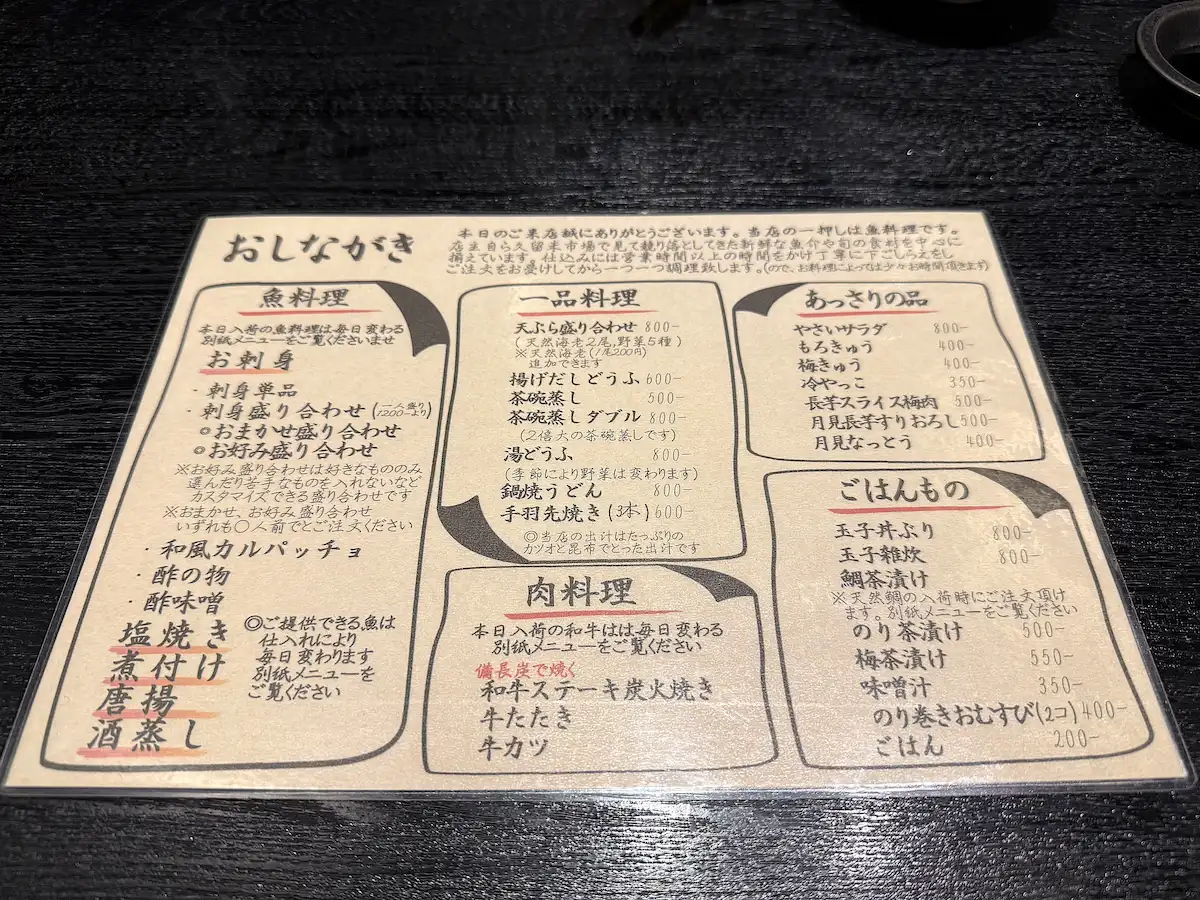 おしながき
本日のご来店誠にありがとうございます。当店の一押しは魚料理です。
店主自ら久留米市場で見て競り落としてきた新鮮な魚介や旬の食材を中心に
揃えています。仕込みには営業時間以上の時間をかけ丁寧に下ごしらえをし
ご注文をお受けしてから一つ一つ調理致します。(ので、お料理によっては少々お時間頂きます)
魚料理
本日入荷の魚料理は毎日変わる
別紙メニューをご覧くださいませ
お刺身
・刺身単品
・刺身盛り合わせ(一人盛り1200-より)
◎おまかせ盛り合わせ
◎お好み盛り合わせ
※お好み盛り合わせは好きなもののみ
選んだり苦手なものを入れないなど
カスタマイズできる盛り合わせです
※おまかせ、お好み盛り合わせ
いずれも〇人前でとご注文ください
・和風カルパッチョ
・酢の物
・酢味噌
塩焼き
煮付け
唐揚
酒蒸し
◎ご提供できる魚は
仕入れにより
毎日変わります
別紙メニューを
ご覧ください
一品料理
天ぷら盛り合わせ 800-
(天然海老2尾,野菜5種)
※天然海老(1尾200円)
追加できます
揚げだしどうふ 600-
茶碗蒸し 500-
茶碗蒸しダブル 800-
(2倍大の茶碗蒸しです)
湯どうふ 800-
(季節により野菜は変わります)
鍋焼うどん 800-
手羽先焼き(3本) 600-
◎当店の出汁はたっぷりの
カツオと昆布でとった出汁です
肉料理
本日入荷の和牛はは毎日変わる
別紙メニューをご覧ください
備長炭で焼く
和牛ステーキ炭火焼き
牛たたき
牛カツ
あっさりの品
やさいサラダ 800-
もろきゅう 400-
梅きゅう 400-
冷やっこ 350-
長芋スライス梅肉 500-
月見長芋すりおろし 500-
月見なっとう 400-
ごはんもの
玉子丼ぶり 800-
玉子雑炊 800-
鯛茶漬け
※天然鯛の入荷時にご注文頂け
ます。別紙メニューをご覧ください
のり茶漬け 500-
梅茶漬け 550-
味噌汁 350-
のり巻きおむすび(2コ) 400-
ごはん 200-